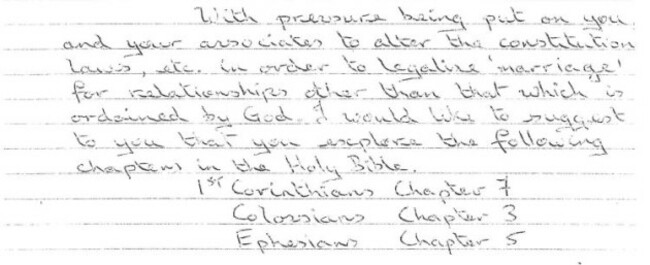 With pressure being put on you
and your associates to alter the constitution
laws, etc. in order to legalise 'marriage'
for relationships other than that which is
ordained by God. I would like to suggest
to you that you explore the following
chapters in the Holy Bible.
1ST Corinthians Chapter 7
Colossians Chapter 3
Ephesians Chapter 5